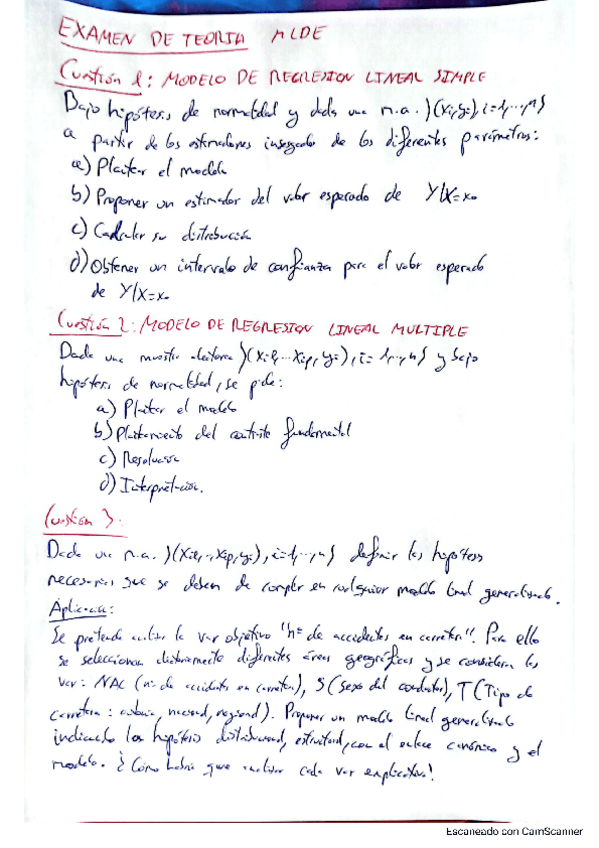 EXAMEN DE TEORIA MLDE
Cuestión 1: MODELO DE REGRESION LINEAL SIMPLE
Bajo hipótesis de normalidad y dada una m.a. {(xi,yi), i=1,...,n}
a partir de los estimadores insesgados de los diferentes parámetros:
a) Plantear el modelo
b) Proponer un estimador del valor esperado de Y/X=x0
c) Calcular su distribución
d) Obtener un intervalo de confianza para el valor esperado
de Y/X=x0
Cuestión 2: MODELO DE REGRESION LINEAL MULTIPLE
Dada una muestra aleatoria {(xi1,...xip, yi), i=1,..,n} y bajo
hipótesis de normalidad, se pide:
a) Plantear el modelo
b) Planteamiento del contraste fundamental
c) Resolución
d) Interpretación.
Cuestión 3:
Dada una m.a. {(xi1,..,xip,yi), i=1,..,n} definir las hipótesis
necesarias que se deben de cumplir en cualquier modelo lineal generalizado.
Aplicación:
Se pretende analizar la var objetivo "nº de accidentes en carretera". Para ello
se seleccionan aleatoriamente diferentes áreas geográficas y se consideran las
var: NAC (nº de accidentes en carretera), S (sexo del conductor), T (Tipo de
carretera: autovía, nacional, regional). Proponer un modelo lineal generalizado
indicando las hipótesis distribucional, estructural, con el enlace canónico y el
modelo. ¿Cómo habría que analizar cada var explicativa?
Escaneado con CamScanner